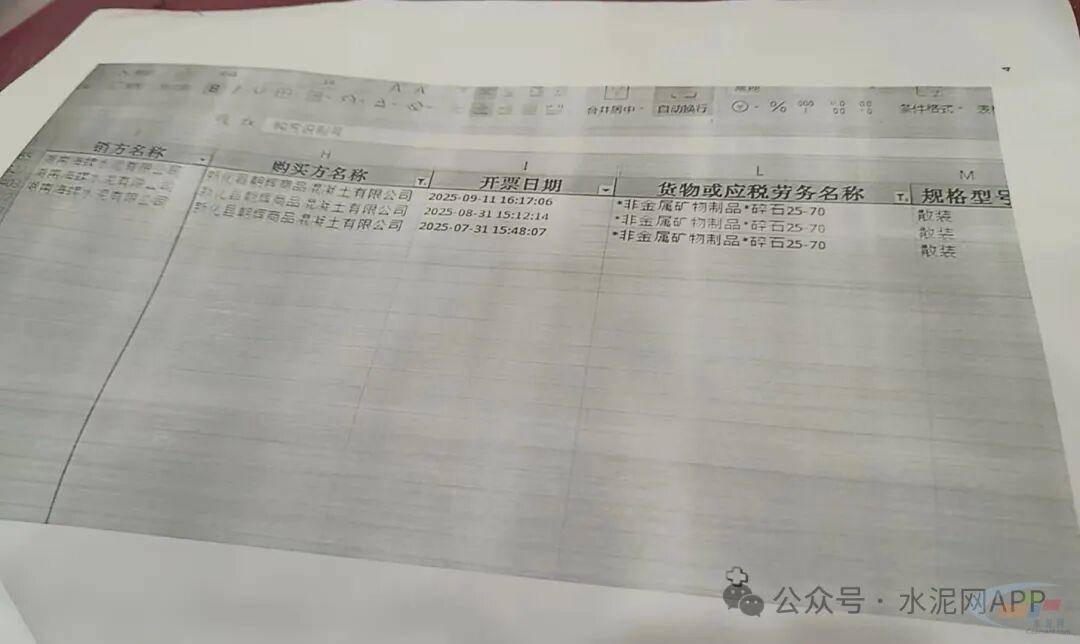 合并居中 自动换行 % 条件格式
销方名称 H 购买方名称 I 开票日期 L 货物或应税劳务名称 M 规格型号
湖南海螺水泥有限公司 新化县朝辉商品混凝土有限公司 2025-09-11 16:17:06 *非金属矿物制品*碎石25-70 散装
湖南海螺水泥有限公司 新化县朝辉商品混凝土有限公司 2025-08-31 15:12:14 *非金属矿物制品*碎石25-70 散装
湖南海螺水泥有限公司 新化县朝辉商品混凝土有限公司 2025-07-31 15:48:07 *非金属矿物制品*碎石25-70 散装
公众号 · 水泥网APP
水泥网